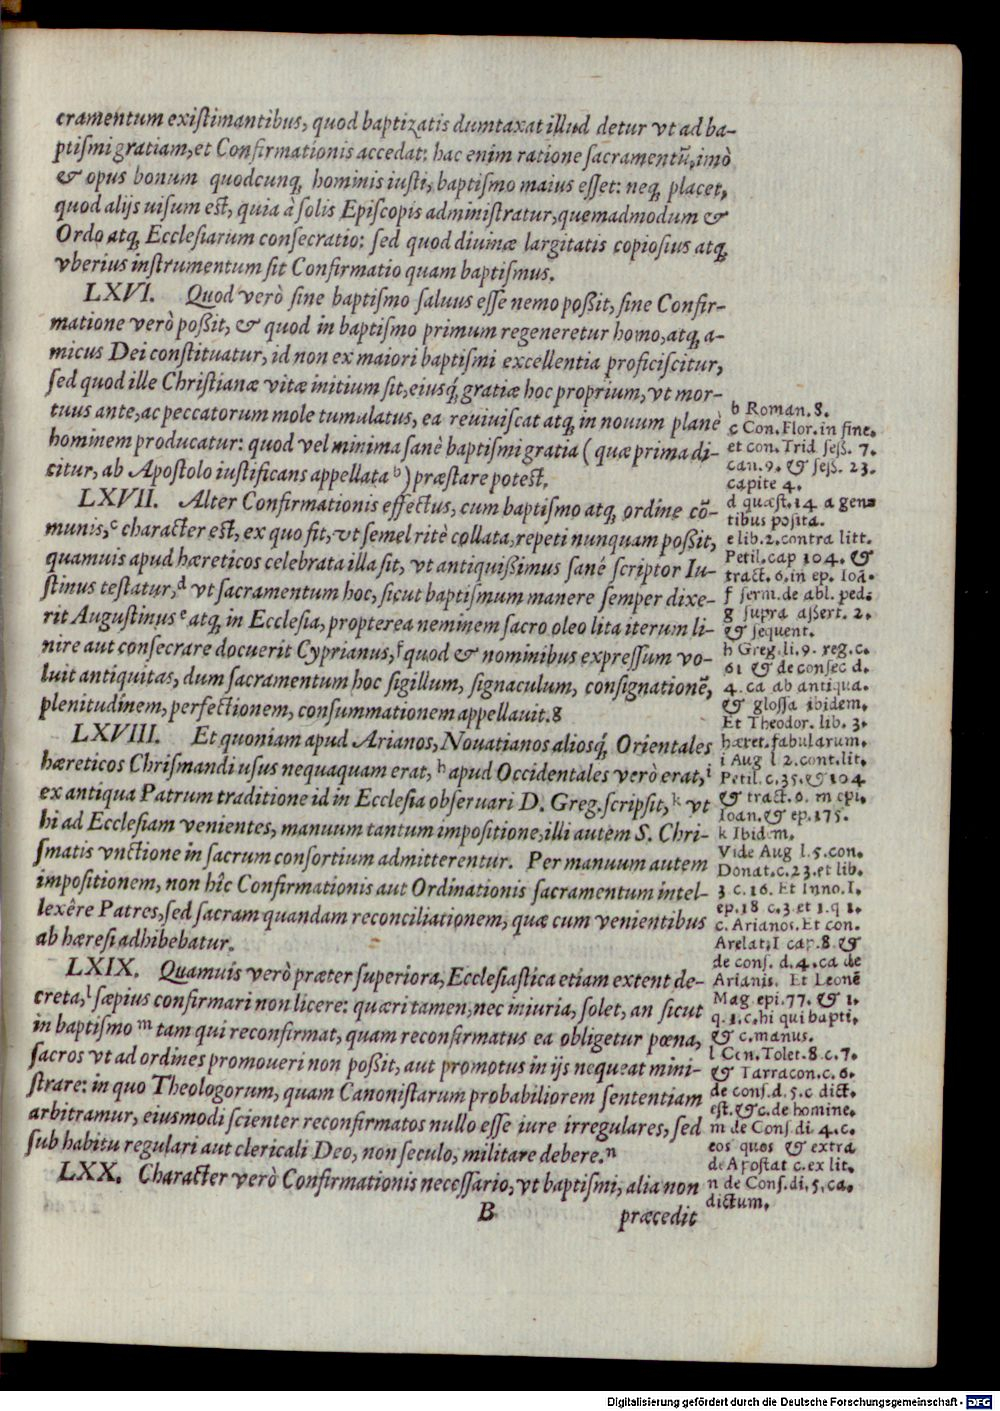 cramentum exiſtimantibus, quod baptizatis dumtaxat illud detur vt ad ba-
ptiſmi gratiam, et Confirmationis accedat: hac enim ratione ſacramentũ, imò
& opus bonum quodcunq; hominis iuſti, baptiſmo maius eſſet: neq; placet,
quod alijs uiſum eſt, quia à ſolis Epiſcopis adminiſtratur, quemadmodum &
Ordo atq; Eccleſiarum conſecratio: ſed quod diuinæ largitatis copioſius atq;
vberius inſtrumentum ſit Confirmatio quam baptiſmus.
LXVI. Quod verò ſine baptiſmo ſaluus eſſe nemo poßit, ſine Confir-
matione verò poßit, & quod in baptiſmo primum regeneretur homo, atq; a-
micus Dei conſtituatur, id non ex maiori baptiſmi excellentia proficiſcitur,
ſed quod ille Chriſtianæ vitæ initium ſit, eiusq; gratiæ hoc proprium, vt mor-
tuus ante, ac peccatorum mole tumulatus, ea reuiuiſcat atq; in nouum planè
hominem producatur: quod vel minima ſanè baptiſmi gratia ( quæ prima di-
citur, ab Apoſtolo iuſtificans appellata b) præſtare poteſt.
LXVII. Alter Confirmationis effectus, cum baptiſmo atq; ordine cõ-
munis, c character eſt, ex quo fit, vt ſemel ritè collata, repeti nunquam poßit,
quamuis apud hæreticos celebrata illa ſit, vt antiquißimus ſanè ſcriptor Iu-
ſtinus teſtatur, d vt ſacramentum hoc, ſicut baptiſmum manere ſemper dixe-
rit Auguſtinus e atq; in Eccleſia, propterea neminem ſacro oleo lita iterum li-
nire aut conſecrare docuerit Cyprianus, f quod & nominibus expreſſum vo-
luit antiquitas, dum ſacramentum hoc ſigillum, ſignaculum, conſignationẽ,
plenitudinem, perfectionem, conſummationem appellauit. g
LXVIII. Et quoniam apud Arianos, Nouatianos alioſq; Orientales
hæreticos Chriſmandi uſus nequaquam erat, h apud Occidentales verò erat, i
ex antiqua Patrum traditione id in Eccleſia obſeruari D. Greg. ſcripſit, k vt
hi ad Eccleſiam venientes, manuum tantum impoſitione, illi autem S. Chri-
ſmatis vnctione in ſacrum conſortium admitterentur. Per manuum autem
impoſitionem, non hîc Confirmationis aut Ordinationis ſacramentum intel-
lexêre Patres, ſed ſacram quandam reconciliationem, quæ cum venientibus
ab hæreſi adhibebatur.
LXIX. Quamuis verò præter ſuperiora, Eccleſiaſtica etiam extent de-
creta, l ſæpius confirmari non licere: quæri tamen, nec iniuria, ſolet, an ſicut
in baptiſmo m tam qui reconfirmat, quam reconfirmatus ea obligetur pœna,
ſacros vt ad ordines promoueri non poßit, aut promotus in ijs nequeat mini-
ſtrare: in quo Theologorum, quam Canoniſtarum probabiliorem ſententiam
arbitramur, eiusmodi ſcienter reconfirmatos nullo eſſe iure irregulares, ſed
ſub habitu regulari aut clericali Deo, non ſeculo, militare debere. n
LXX. Character verò Confirmationis neceſſario, vt baptiſmi, alia non
B præcedit
b Roman. 8.
c Con. Flor. in fine.
et con. Trid ſeß. 7.
can. 9. & ſeß. 23.
capite 4.
d quæſt. 14 a gen=
tibus poſita.
e lib. 2. contra litt.
Petil. cap 104. &
tract. 6. in ep. Ioã.
f ſerm. de abl. ped.
g ſupra aßert. 2.
& ſequent.
h Greg. li. 9. reg. c.
61 & de conſec d.
4. ca ab antiqua.
& gloſſa ibidem.
Et Theodor. lib. 3.
hæret. fabularum.
i Aug l 2. cont. lit.
Petil. c. 35. & 104
& tract. 6. in epi.
Ioan. & ep. 175.
k Ibidem.
Vide Aug l. 5. con.
Donat. c. 23. et lib.
3 c. 16. Et Inno. I.
ep. 18 c. 3 et 1. q 1.
c. Arianos. Et con.
Arelat. I cap. 8 &
de conſ. d. 4. ca de
Arianis. Et Leonẽ
Mag. epi. 77. & 1.
q. 1. c. hi qui bapti.
& c. manus.
l Con. Tolet. 8 c. 7.
& Tarracon. c. 6.
de conſ. d. 5. c dict.
eſt. & c. de homine.
m de Conſ. di 4. c.
eos quos & extra
de Apoſtat c. ex lit.
n de Conſ. di. 5. ca.
dictum.
Digitalisierung gefördert durch die Deutsche Forschungsgemeinschaft - DFG